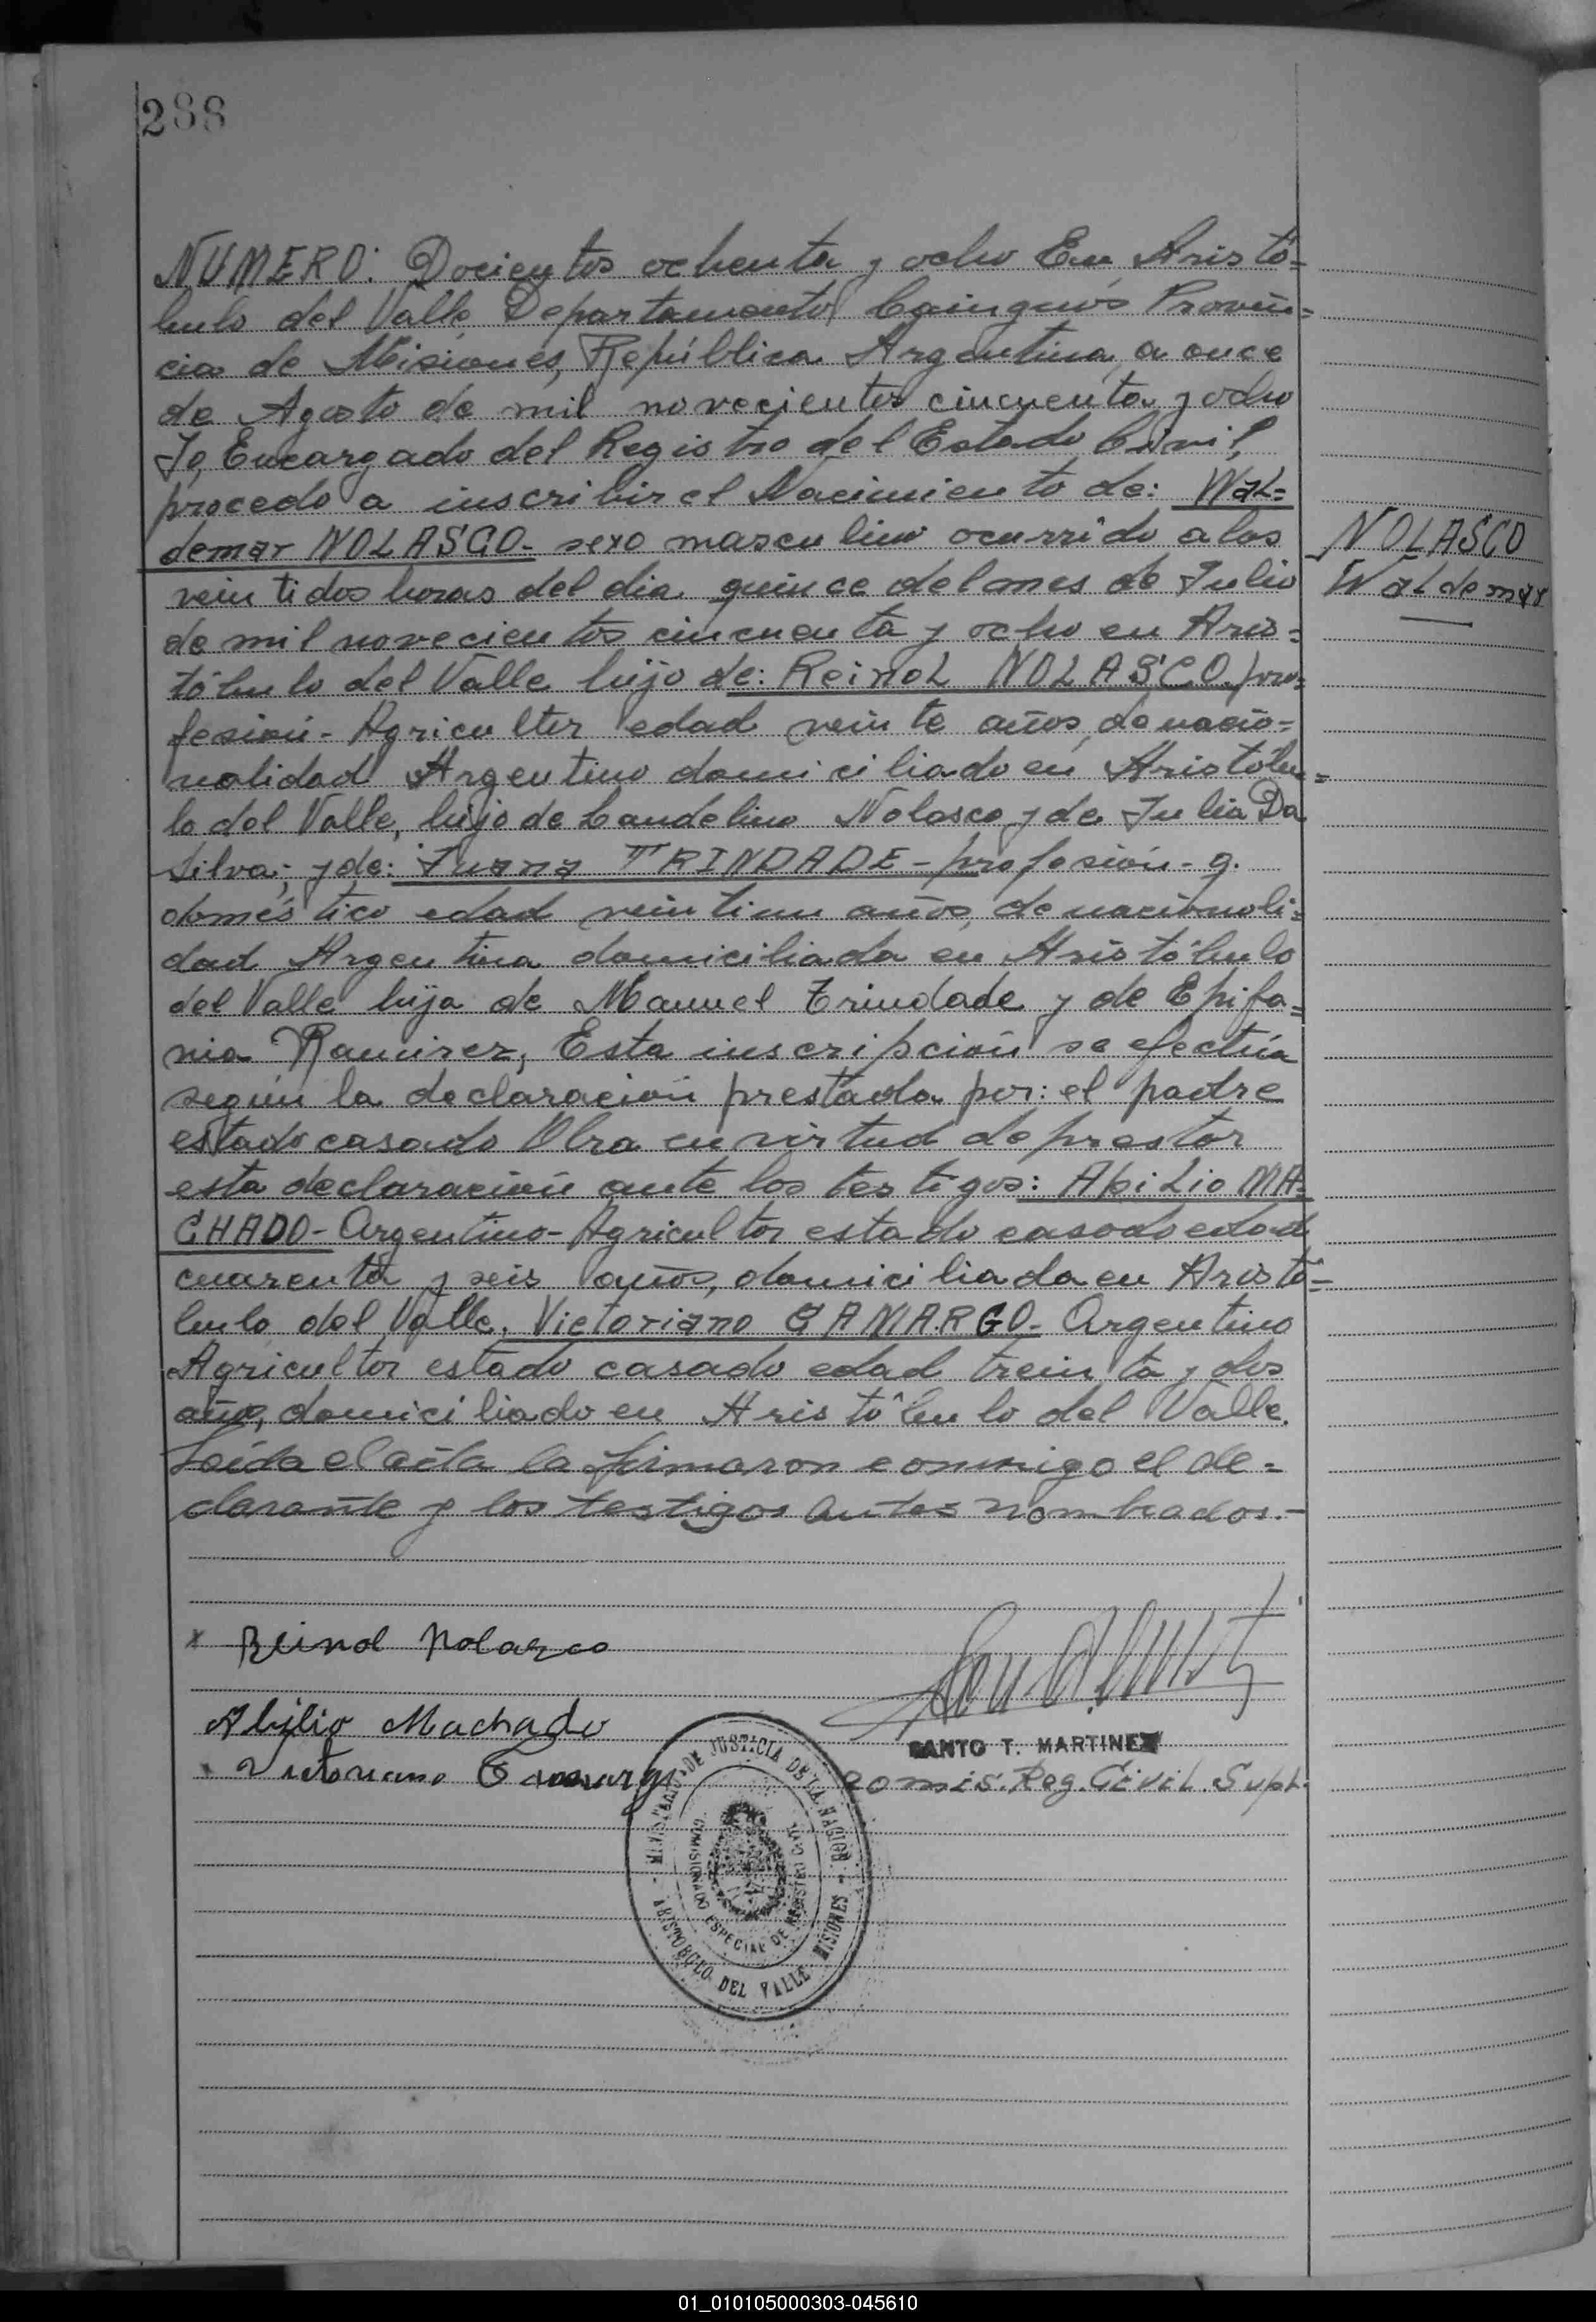 288
NUMERO: Docientos ochenta y ocho En Aristó=
bulo del Valle Departamento Cainguás Provin=
cia de Misiones, República Argentina, a once
de Agosto de mil novecientos cincuenta y ocho
Yo, Encargado del Registro del Estado Civil,
procedo a inscribir el Nacimiento de: WaL=
demar NOLASCO- sexo masculino ocurrido a las
NOLASCO
veintidos horas del dia quince del mes de Julio
WaLdemar
de mil novecientos cincuenta y ocho en Aris=
tóbulo del Valle hijo de: ReinoL NOLASCO. pro=
fesión- Agricultor edad veinte años, de nacio=
nalidad Argentino domiciliado en Aristóbu=
lo del Valle, hijo de Candelino Nolasco y de Julia Da
Silva; y de: Juana TRINDADE- profesión- q.
doméstico edad veintiun años, de nacionali=
dad Argentina domiciliada en Aristóbulo
del Valle hija de Manuel Trindade y de Epifa=
nia Ramirez, Esta inscripción se efectúa
según la declaración prestada por: el padre
estado casado Obra en virtud de prestar
esta declaración ante los testigos: AbiLio MA=
CHADO- Argentino- Agricultor estado casado edad
cuarenta y seis años, domiciliada en Aristó=
bulo del Valle. Victoriano CAMARGO- Argentino
Agricultor estado casado edad treinta y dos
años, domiciliado en Aristóbulo del Valle.
Leída el acta la firmaron conmigo el de=
clarante y los testigos antes nombrados.-
x Reinol Nolasco
Abilio Machado
SANTO T. MARTINEZ
Victoriano Camargo
Comis. Reg. CiviL. SupL.
MINISTERIO DE JUSTICIA DE LA NACION
COMISIONADO ESPECIAL DE REGISTRO CIVIL
ARISTOBULO DEL VALLE MISIONES
01_010105000303-045610